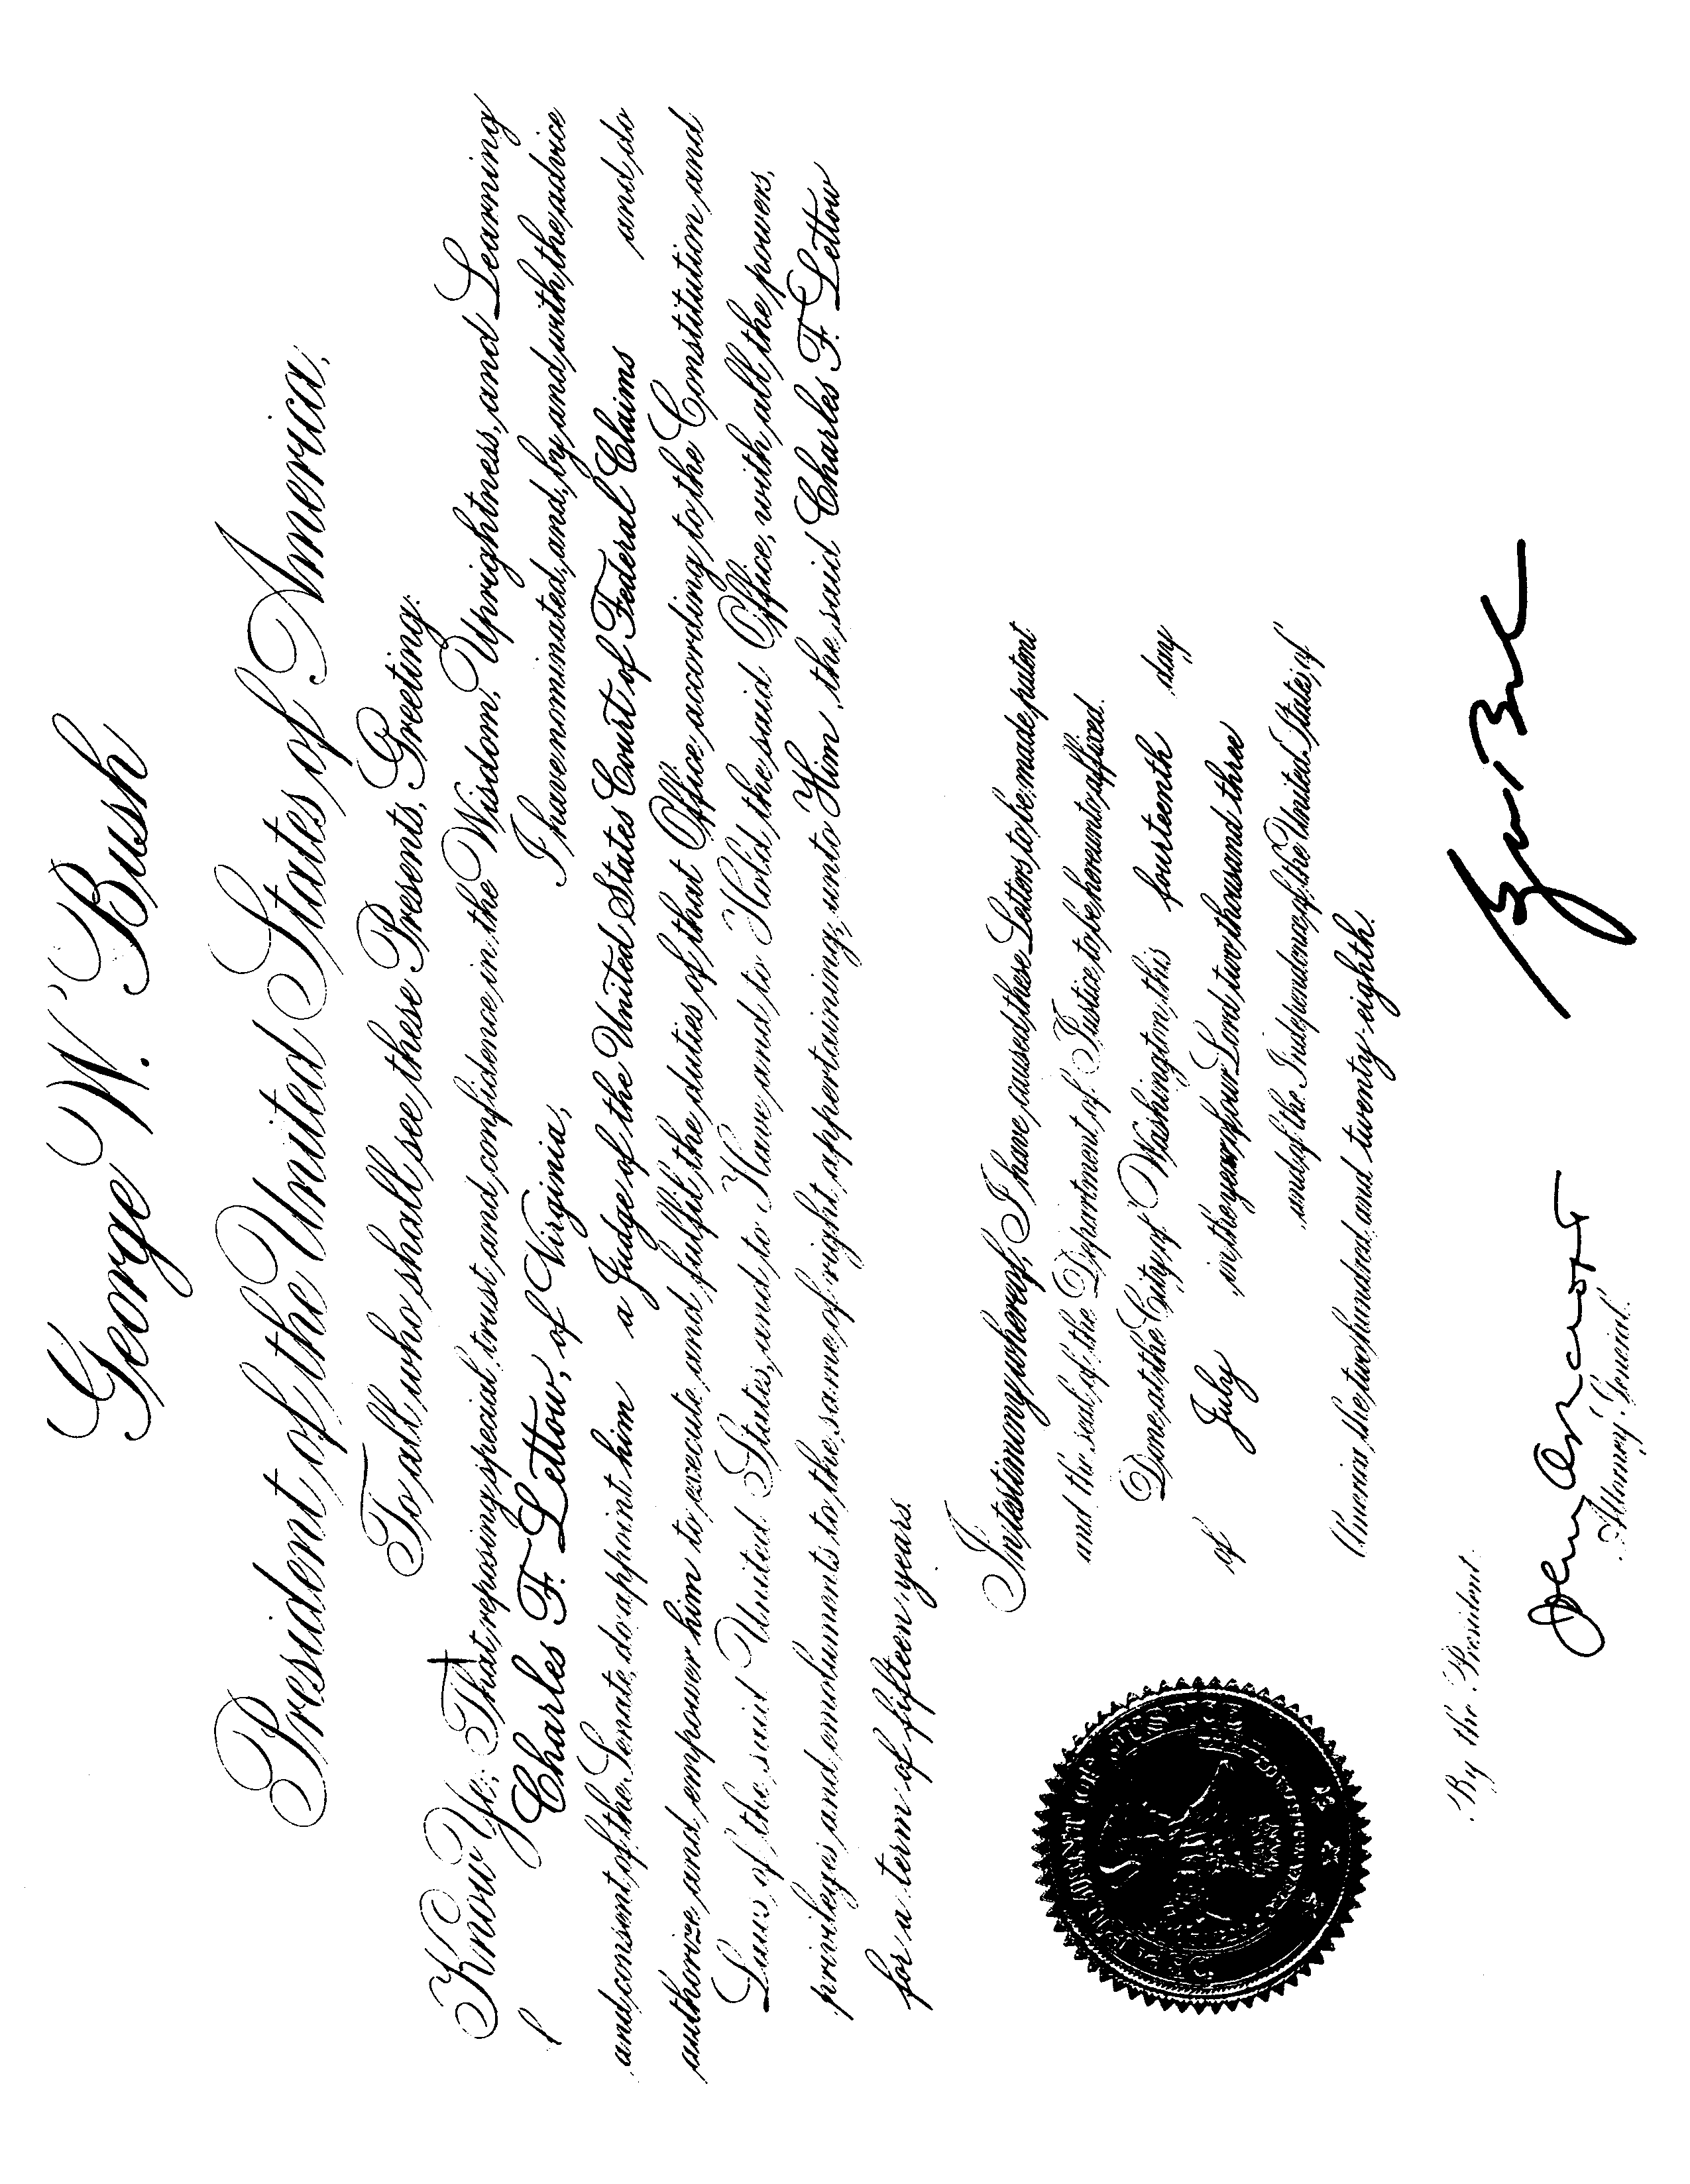 George W. Bush
President of the United States of America,
To all who shall see these Presents, Greeting:
Know Ye; That, reposing special trust and confidence in the Wisdom, Uprightness, and Learning
of Charles F. Lettow, of Virginia, I have nominated, and, by and with the advice
and consent of the Senate, do appoint him a Judge of the United States Court of Federal Claims and do
authorize and empower him to execute and fulfil the duties of that Office according to the Constitution and
Laws of the said United States, and to Have and to Hold the said Office, with all the powers,
privileges and emoluments to the same of right appertaining, unto Him, the said Charles F. Lettow
for a term of fifteen years.
In testimony whereof, I have caused these Letters to be made patent
and the seal of the Department of Justice to be hereunto affixed.
Done at the City of Washington, this fourteenth day
of July in the year of our Lord two thousand three
and of the Independence of the United States of
America the two hundred and twenty-eighth.
By the President:
Attorney General.